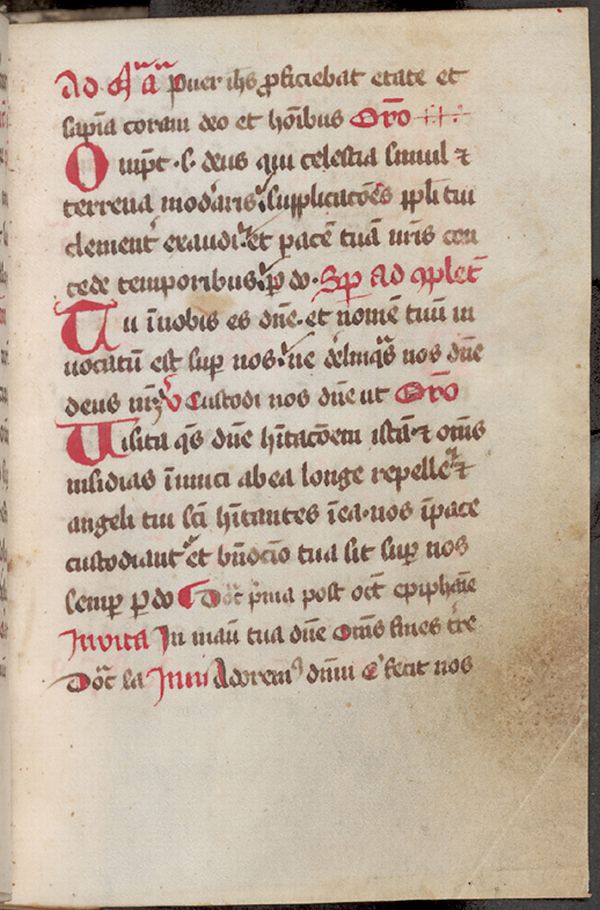 Ad M̄a puer ihs proficiebat etate et
sapīa coram deo et hoībus Orō
Omp̄c · s · deus qui celestia simul ⁊
terrena moderaris supplicatōēs ppli tui
clementʼ exaudi et pacē tuā nr̄is con
cede temporibus p do · Sup ad ꝯplet̄
Tu ī nobis es dn̄e · et nomē tuū in
uocatū est sup nos ne derlinqs nos dn̄e
deus nr̄ ℣ Custodi nos dn̄e ut Orō
Uisita qs dn̄e hītacōem istā ⁊ om̄s
insidias īimici ab ea longe repelle ⁊
angeli tui sc̄i hītantes ī ea · nos ī pace
custodiant et bn̄dcīo tua sit sup nos
semp p do Dōc p̄ma post oct̄ epiphāie
Inuita In manū tua dn̄e Om̄s fines tr̄e
Dōc la Inui Adoremꝰ dn̄m q̄ fecit nos